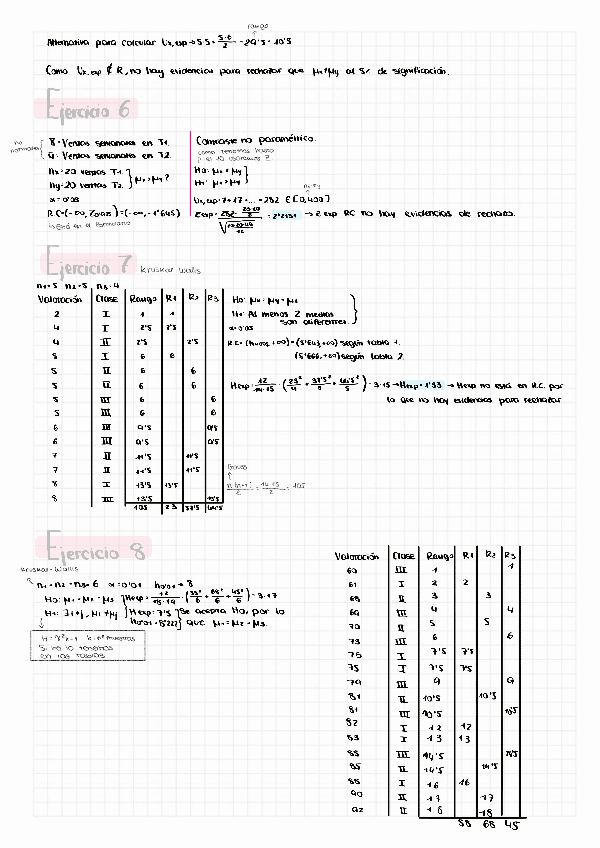 rango
Alternativa para calcular Ux,exp → 5·5 + 5·6/2 - 29'5 = 10'5
Como Ux,exp ∉ R, no hay evidencias para rechazar que μx≠μy al 5% de significación.
Ejercicio 6
no normales
X = Ventas semanales en T1.
Y = Ventas semanales en T2.
nx=20 ventas T1.
ny=20 ventas T2.
μx > μy?
α = 0'05
RC=(-∞, Z0'05)=(-∞, -1'645)
Está en el formulario
Contraste no paramétrico.
H0: μx = μy
H1: μx > μy
Ux,exp = 7+17+... = 282 ∈ [0,400]
→ Z exp RC no hay evidencias de rechazo.
Ejercicio 7 Kruskal Wallis
n1=5 n2=5 n3=4
Valoración Clase Rango R1 R2 R3
2 I 1 1
4 I 2'5 2'5
4 II 2'5 2'5
5 I 6 6
5 II 6 6
5 II 6 6
5 III 6 6
5 III 6 6
6 III 9'5 9'5
6 III 9'5 9'5
7 II 11'5 11'5
7 II 11'5 11'5
8 I 13'5 13'5
8 III 13'5 13'5
105 23 37'5 44'5
H0: μx = μy = μz
H1: Al menos 2 medias son diferentes.
α=0'05
RC= (h0'05, +∞) = (5'643, +∞) según tabla 1.
(5'666, +∞) según tabla 2.
→ Hexp = 1'53 → Hexp no está en R.C. por
lo que no hay evidencias para rechazar
n(n+1)/2 = 14·15/2 = 105
Ejercicio 8
Kruskal-Wallis
n1 = n2 = n3 = 6 α = 0'01
H0: μ1 = μ2 = μ3
H1: ∃ i≠j, μi ≠ μj
Se acepta H0, por lo
que μ1 = μ2 = μ3.
Si no lo tenemos
en las tablas
Valoración Clase Rango R1 R2 R3
60 III 1 1
61 I 2 2
68 II 3 3
69 III 4 4
70 II 5 5
73 III 6 6
75 I 7'5 7'5
75 I 7'5 7'5
79 III 9 9
81 II 10'5 10'5
81 III 10'5 10'5
82 I 12 12
83 I 13 13
85 III 14'5 14'5
85 II 14'5 14'5
88 I 16 16
90 II 17 17
92 II 18 18
58 68 45